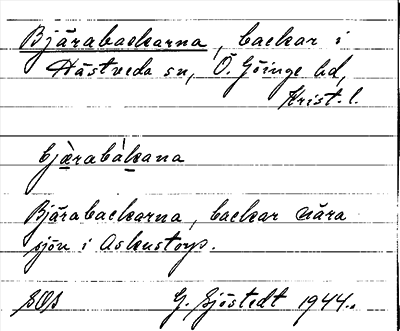 Bjärabackarna, backar i
Hästveda sn, Ö. Göinge hd,
Krist. l.
bjæ̀rabàkana
Bjärabackarna, backar nära
sjön i Askustorp.
SOS G. Sjöstedt 1944.